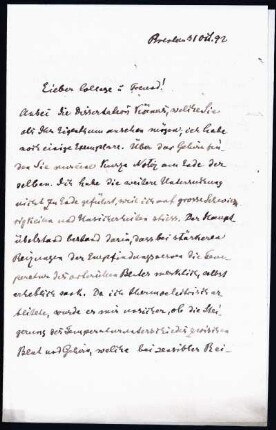 Breslau 31 Oct. 92
Lieber College u Freund!
Anbei die Dissertation Körners, welche Sie
als Ihr Eigenthum ansehen mögen, ich habe
noch einige Exemplare. Über das Gehirn fin-
den Sie nur eine kurze Notiz am Ende der
selben. Ich habe die weitere Untersuchung
nicht zu Ende geführt, weil ich auf grosse Schwie-
rigkeiten und Unsicherheiten stiess. Der Haupt
übelstand bestand darin, dass bei stärkeren
Reizungen der Empfindungsnerven die Tem-
peratur des arteriellen Blutes merklich, selbst
erheblich sank. Da ich thermoelektrisch ar-
beitete, wurde es mir unsicher, ob die Stei-
gerung des Temperaturunterschiedes zwischen
Blut und Gehirn, welche bei sensibler Rei-